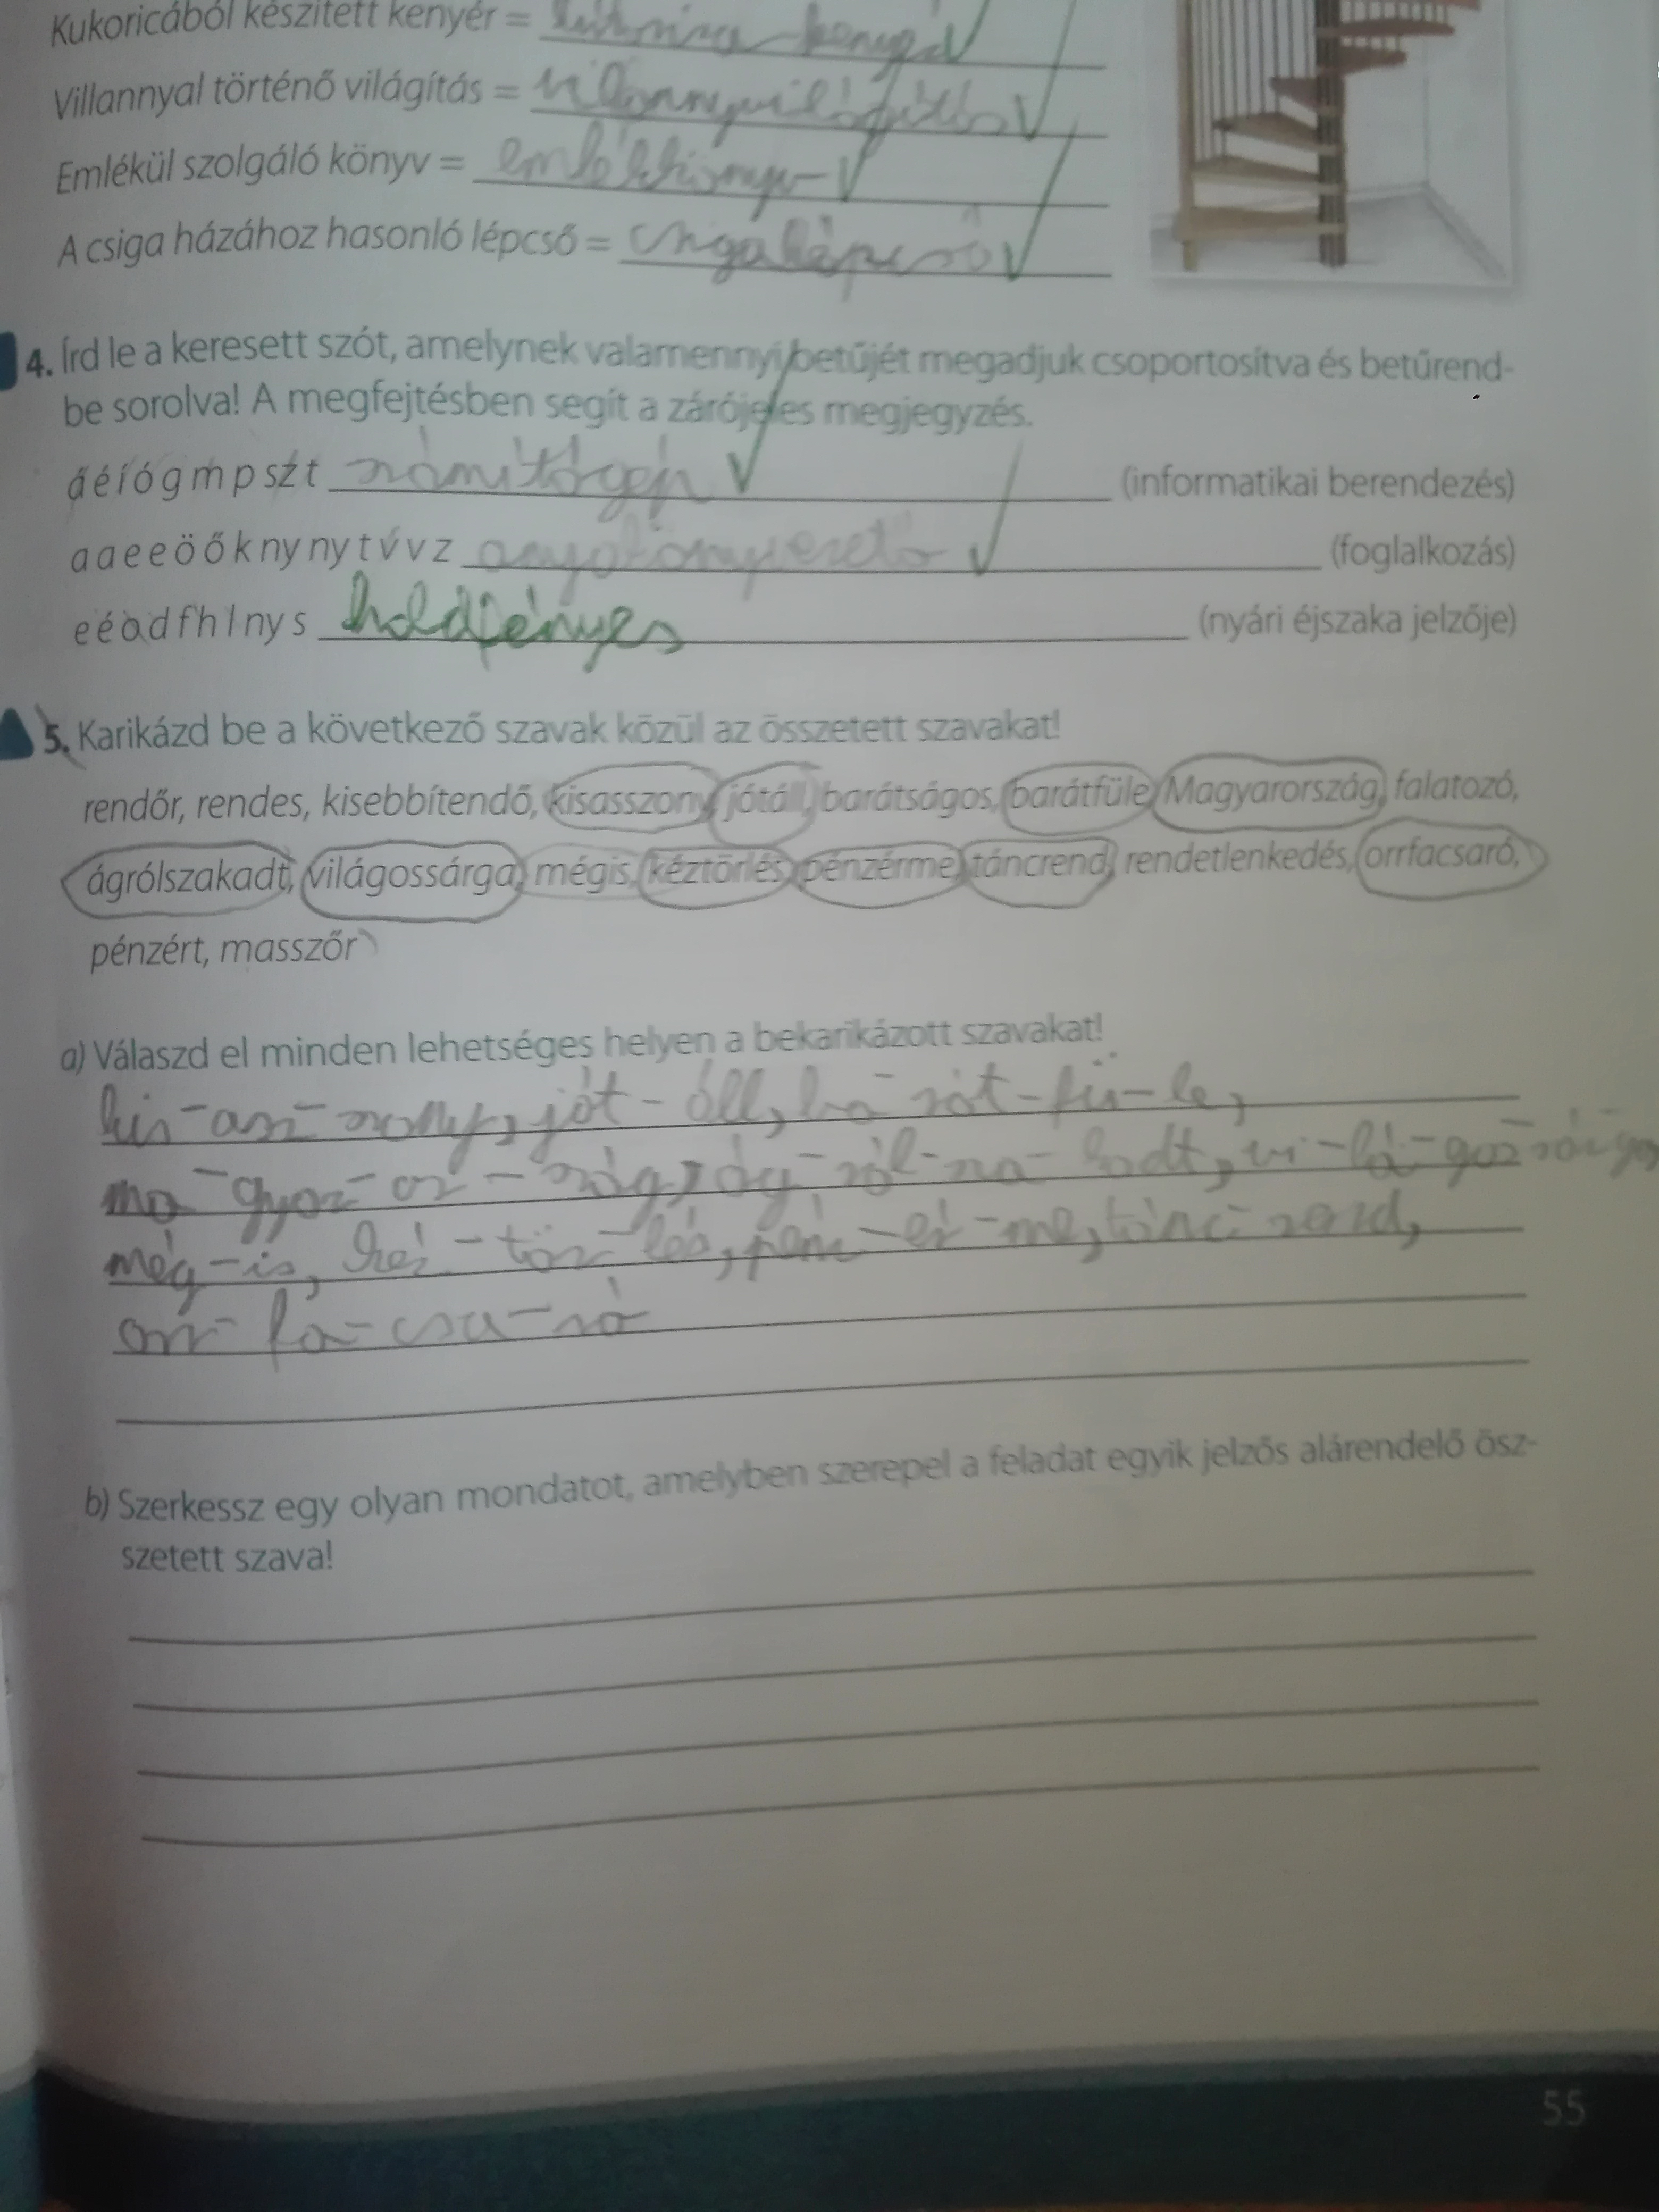 Kukoricából készített kenyér = kukorica kenyér
Villannyal történő világítás = villannyvilágítás
Emlékül szolgáló könyv = emlékkönyv
A csiga házához hasonló lépcső = csigalépcső
4. Írd le a keresett szót, amelynek valamennyi betűjét megadjuk csoportosítva és betűrend-
be sorolva! A megfejtésben segít a zárójeles megjegyzés.
á é í ó g m p sz t számítógép (informatikai berendezés)
a a e e ö ő k ny ny t v v z anyakönyvvezető (foglalkozás)
e é o d f h l ny s holdfényes (nyári éjszaka jelzője)
5. Karikázd be a következő szavak közül az összetett szavakat!
rendőr, rendes, kisebbítendő, kisasszony, jótáll, barátságos, barátfüle, Magyarország, falatozó,
ágrólszakadt, világossárga, mégis, kéztörlés, pénzérme, táncrend, rendetlenkedés, orrfacsaró,
pénzért, masszőr
a) Válaszd el minden lehetséges helyen a bekarikázott szavakat!
kis-asz-szony, jót-áll, ba-rát-fü-le,
ma-gyar-or-szág, ág-ról-sza-kadt, vi-lá-gos
még-is, kéz-tör-lés, pénz-ér-me, tánc-rend,
orr-fa-csa-ró
b) Szerkessz egy olyan mondatot, amelyben szerepel a feladat egyik jelzős alárendelő ösz-
szetett szava!
55